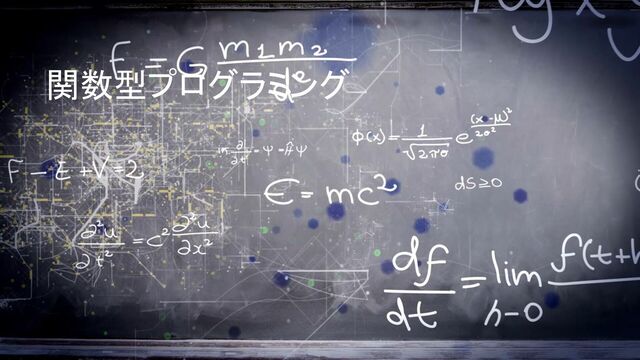 F = G m₁m₂ / d²
関数型プログラミング
φ(x) = 1/√2πσ e (x-μ)²/2σ²
iħ ∂/∂t Ψ = ĤΨ
F - E + V = 2
E = mc²
dS ≥ 0
∂²u/∂t² = c² ∂²u/∂x²
df/dt = lim h→0 f(t+h